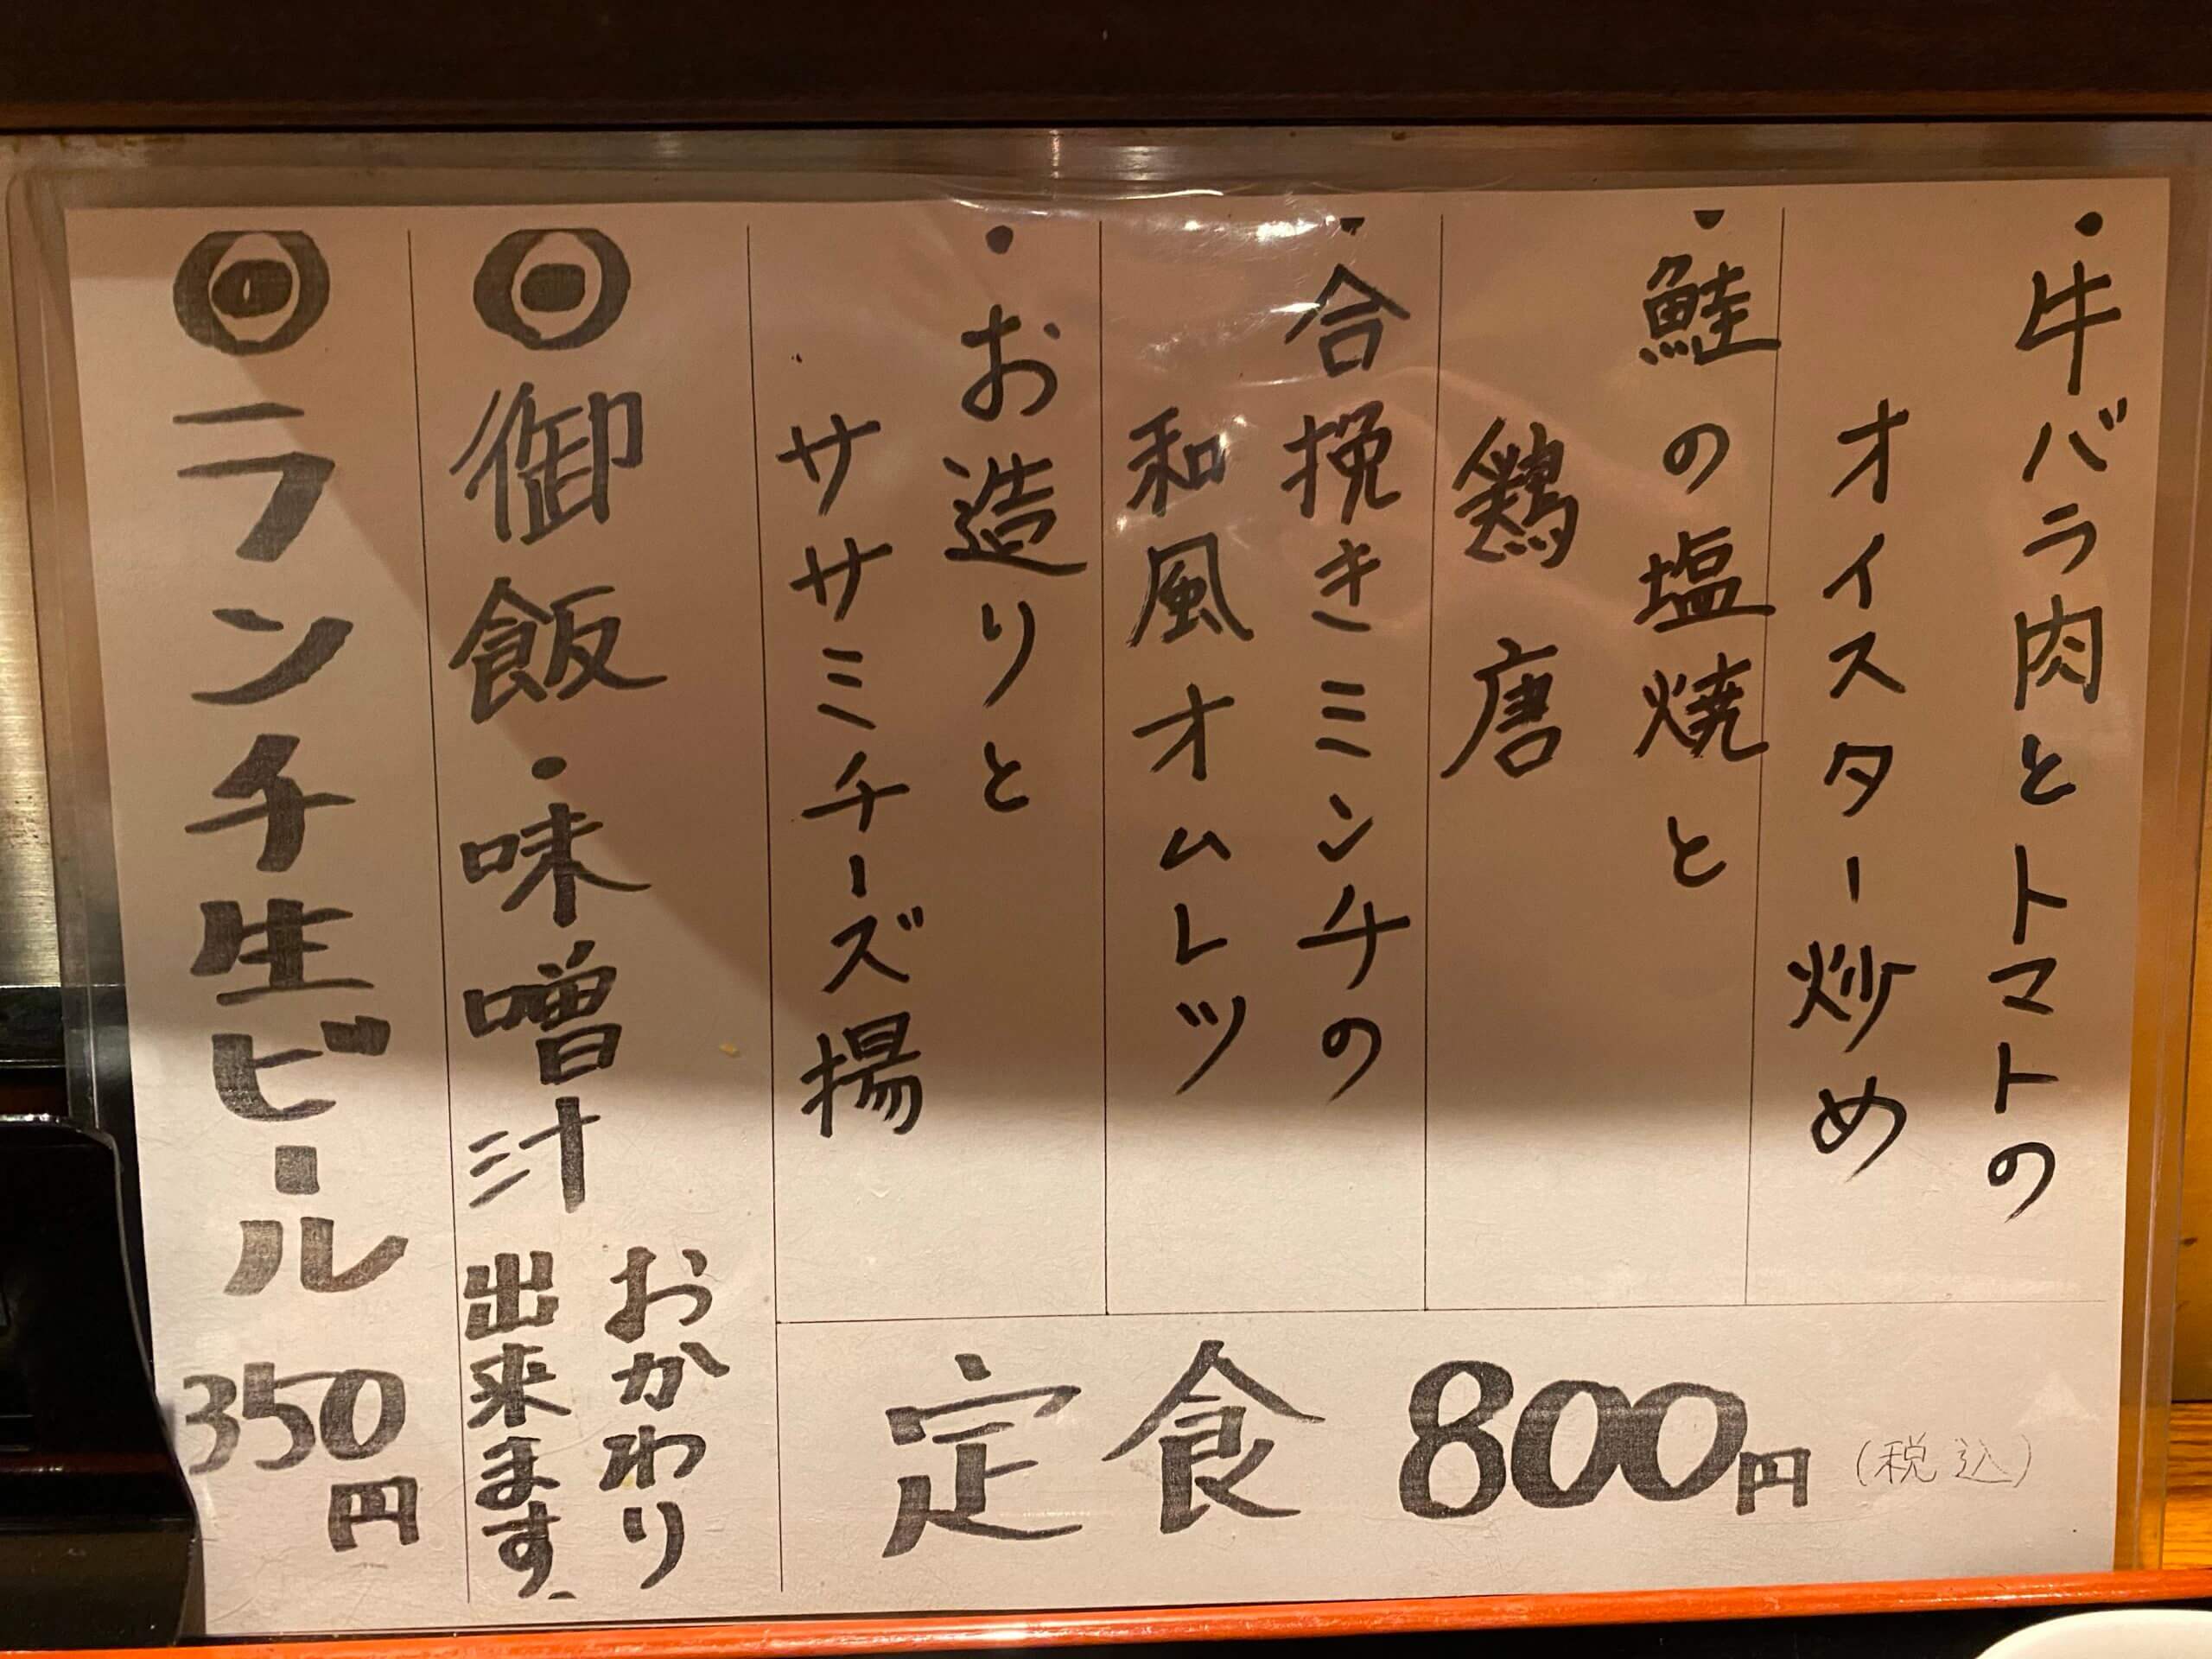 ・牛バラ肉とトマトの
オイスター炒め
・鮭の塩焼と
鶏唐
・合挽きミンチの
和風オムレツ
・お造りと
ササミチーズ揚
定食 800円 (税込)
◎御飯・味噌汁
おかわり
出来ます。
◎ランチ生ビール 350円